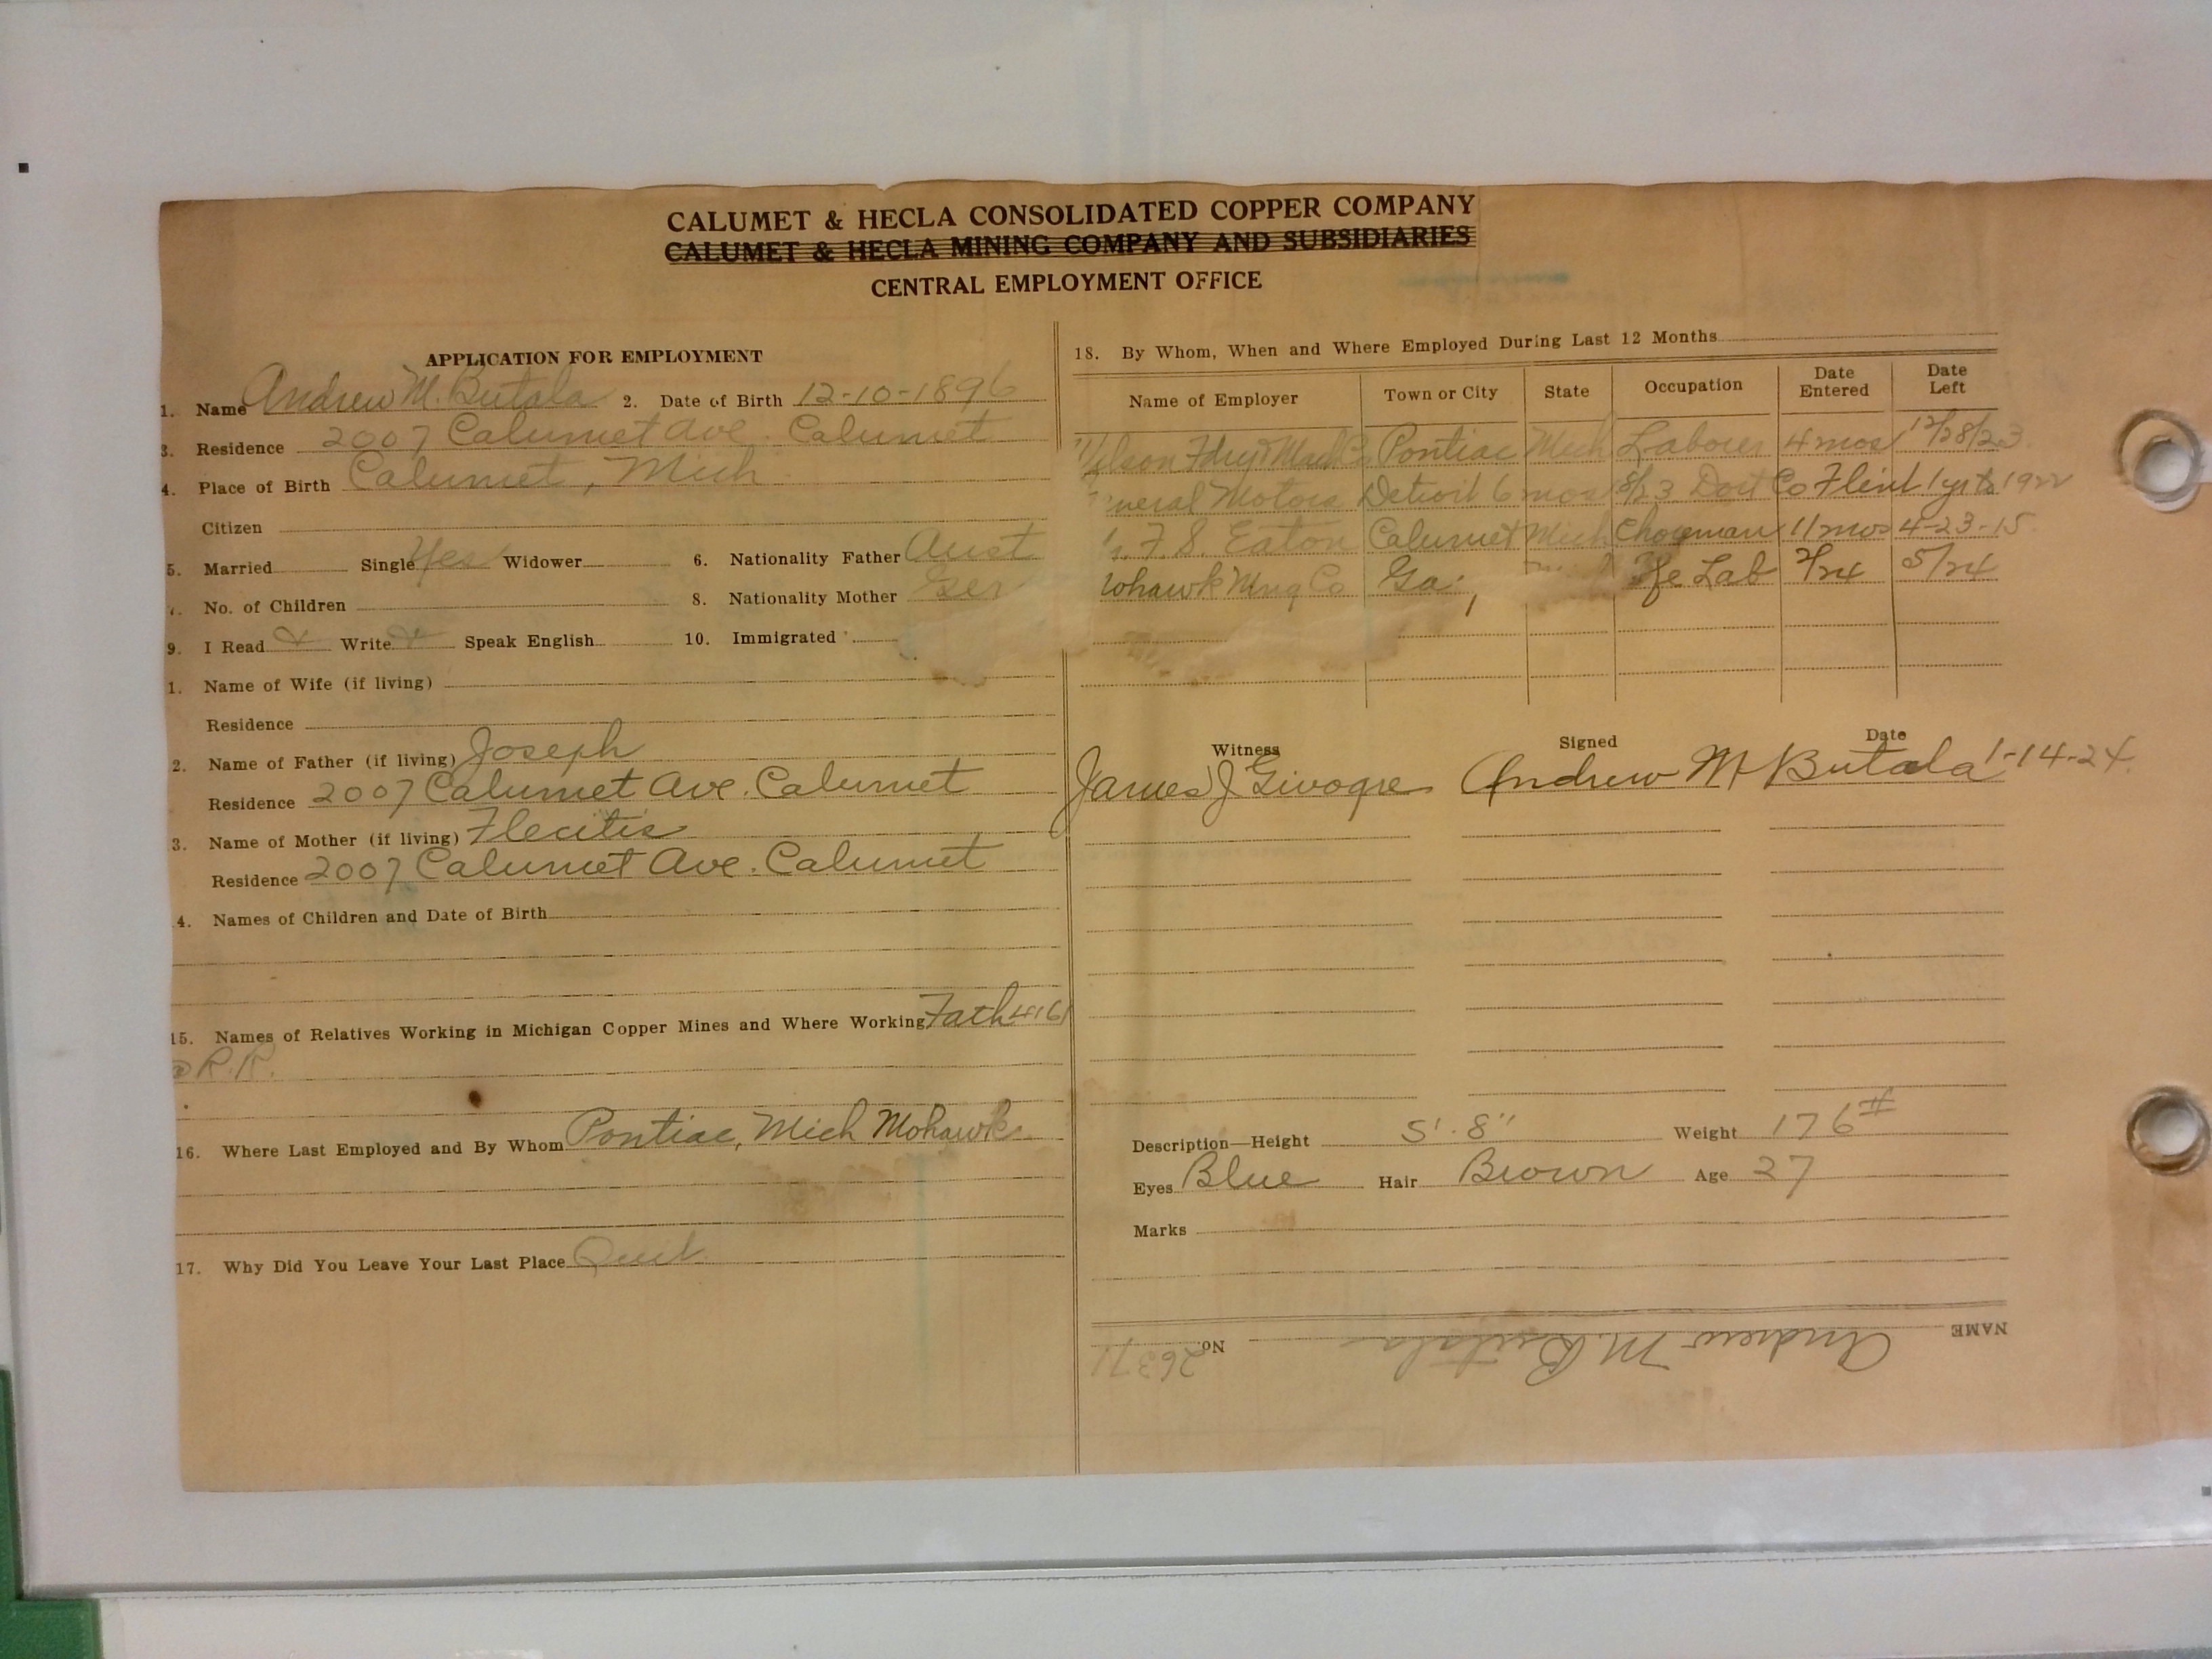 CALUMET & HECLA CONSOLIDATED COPPER COMPANY
CALUMET & HECLA MINING COMPANY AND SUBSIDIARIES
CENTRAL EMPLOYMENT OFFICE
APPLICATION FOR EMPLOYMENT
1. Name Andrew M. Butala 2. Date of Birth 12-10-1896
3. Residence 2007 Calumet Ave. Calumet
4. Place of Birth Calumet, Mich
Citizen
5. Married Single Yes Widower 6. Nationality Father Aust
7. No. of Children 8. Nationality Mother Ger
9. I Read Write Speak English 10. Immigrated
1. Name of Wife (if living)
Residence
2. Name of Father (if living) Joseph
Residence 2007 Calumet Ave. Calumet
3. Name of Mother (if living) Flecitis
Residence 2007 Calumet Ave. Calumet
4. Names of Children and Date of Birth
15. Names of Relatives Working in Michigan Copper Mines and Where Working Fath 4161
R.R.
16. Where Last Employed and By Whom Pontiac, Mich Mohawk
17. Why Did You Leave Your Last Place Quit
18. By Whom, When and Where Employed During Last 12 Months
Name of Employer Town or City State Occupation Date Entered Date Left
Wilson Fdry & Mach Co Pontiac Mich Laborer 4 mos 12/28/23
neral Motors Detroit 6 mos 8/23 Dort Co Flint 1 yr to 1922
F. S. Eaton Calumet Mich 11 mos 4-23-15
ohawk Mng Co Ga Lab 2/24 5/24
Witness Signed Date
James J Givogre Andrew M Butala 1-14-24
Description—Height 5'.8" Weight 176#
Eyes Blue Hair Brown Age 27
Marks
NAME Andrew M. Butala No. 26371